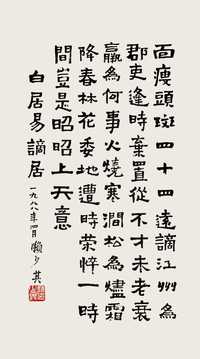 面瘦頭斑四十四遠謫江州為
郡吏逢時棄置從不才未老衰
羸為何事火燒寒澗松為燼霜
降春林花委地遭時榮悴一時
間豈是昭昭上天意
白居易謫居
一九八八年四月賴少其